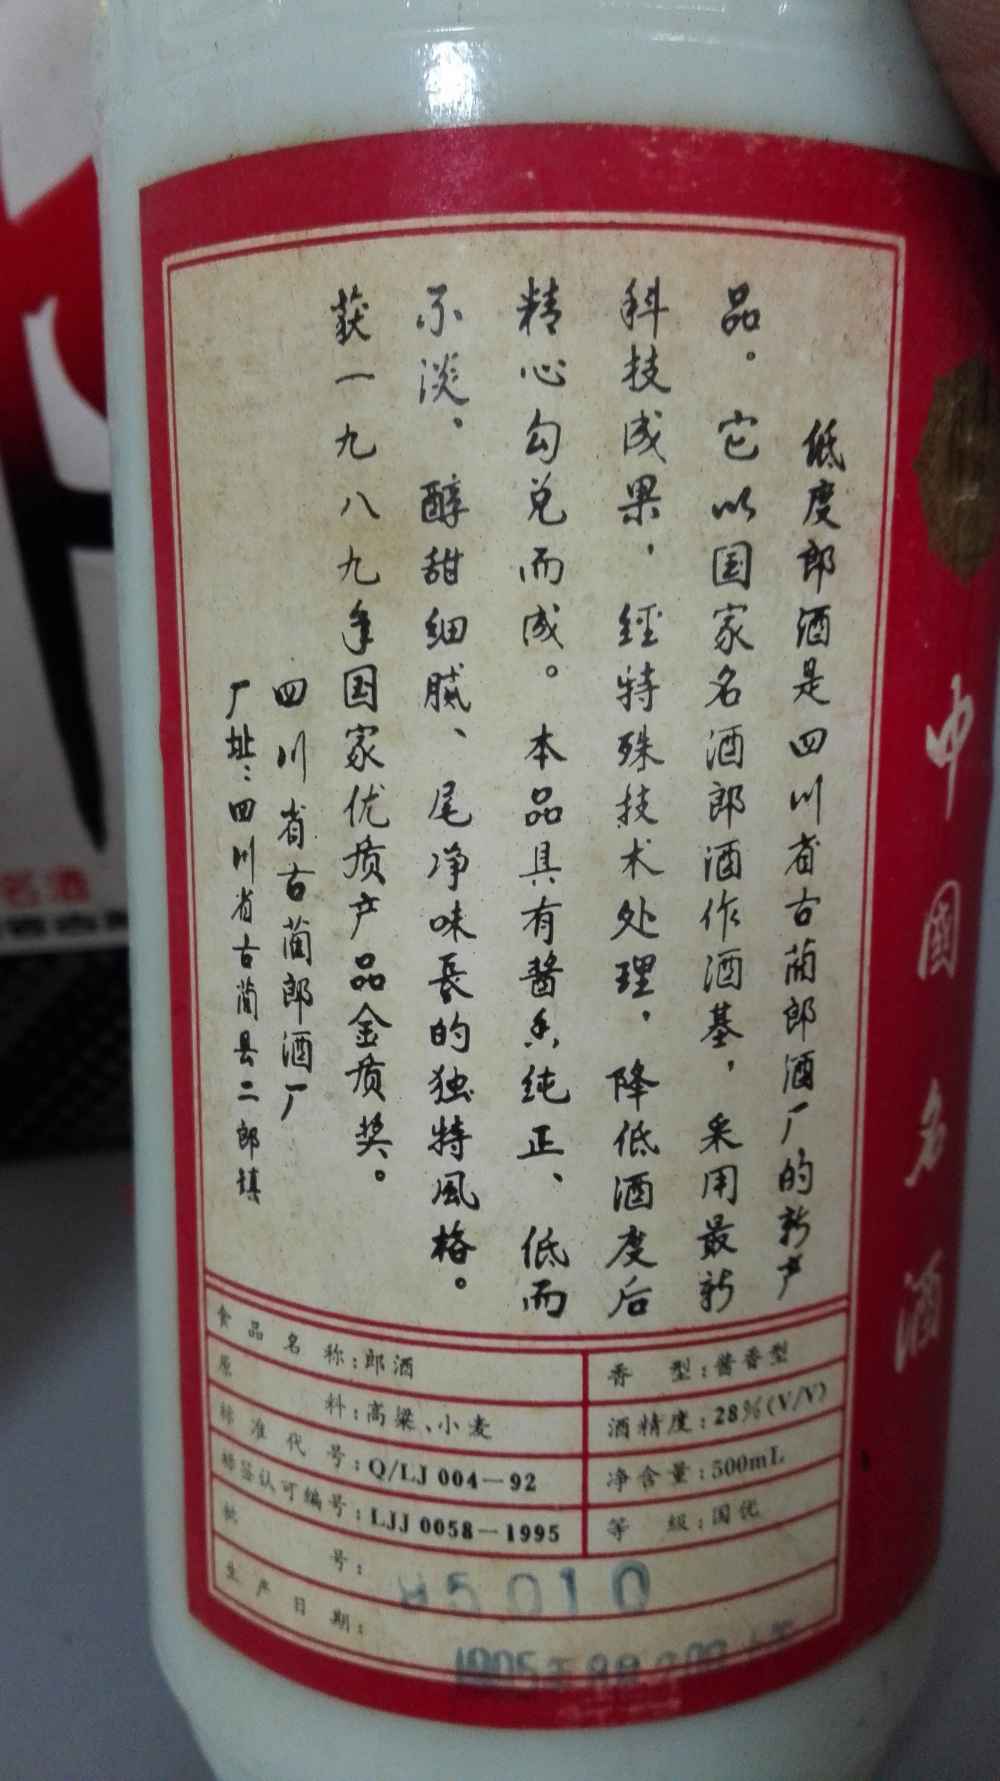 低度郎酒是四川省古蔺郎酒厂的新产
品。它以国家名酒郎酒作酒基，采用最新
科技成果，經特殊技术处理，降低酒度后
精心勾兑而成。本品具有酱香纯正、低而
不淡、醇甜细腻、尾净味長的独特風格。
获一九八九年国家优质产品金质奖。
四川省古蔺郎酒厂
厂址：四川省古蔺县二郎镇
食品名称：郎酒
香型：酱香型
原料：高粱、小麦
酒精度：28%(V/V)
标准代号：Q/LJ 004—92
净含量：500mL
标签认可编号：LJJ 0058—1995
等级：国优
批号：
5010
生产日期：
中國名酒
名酒